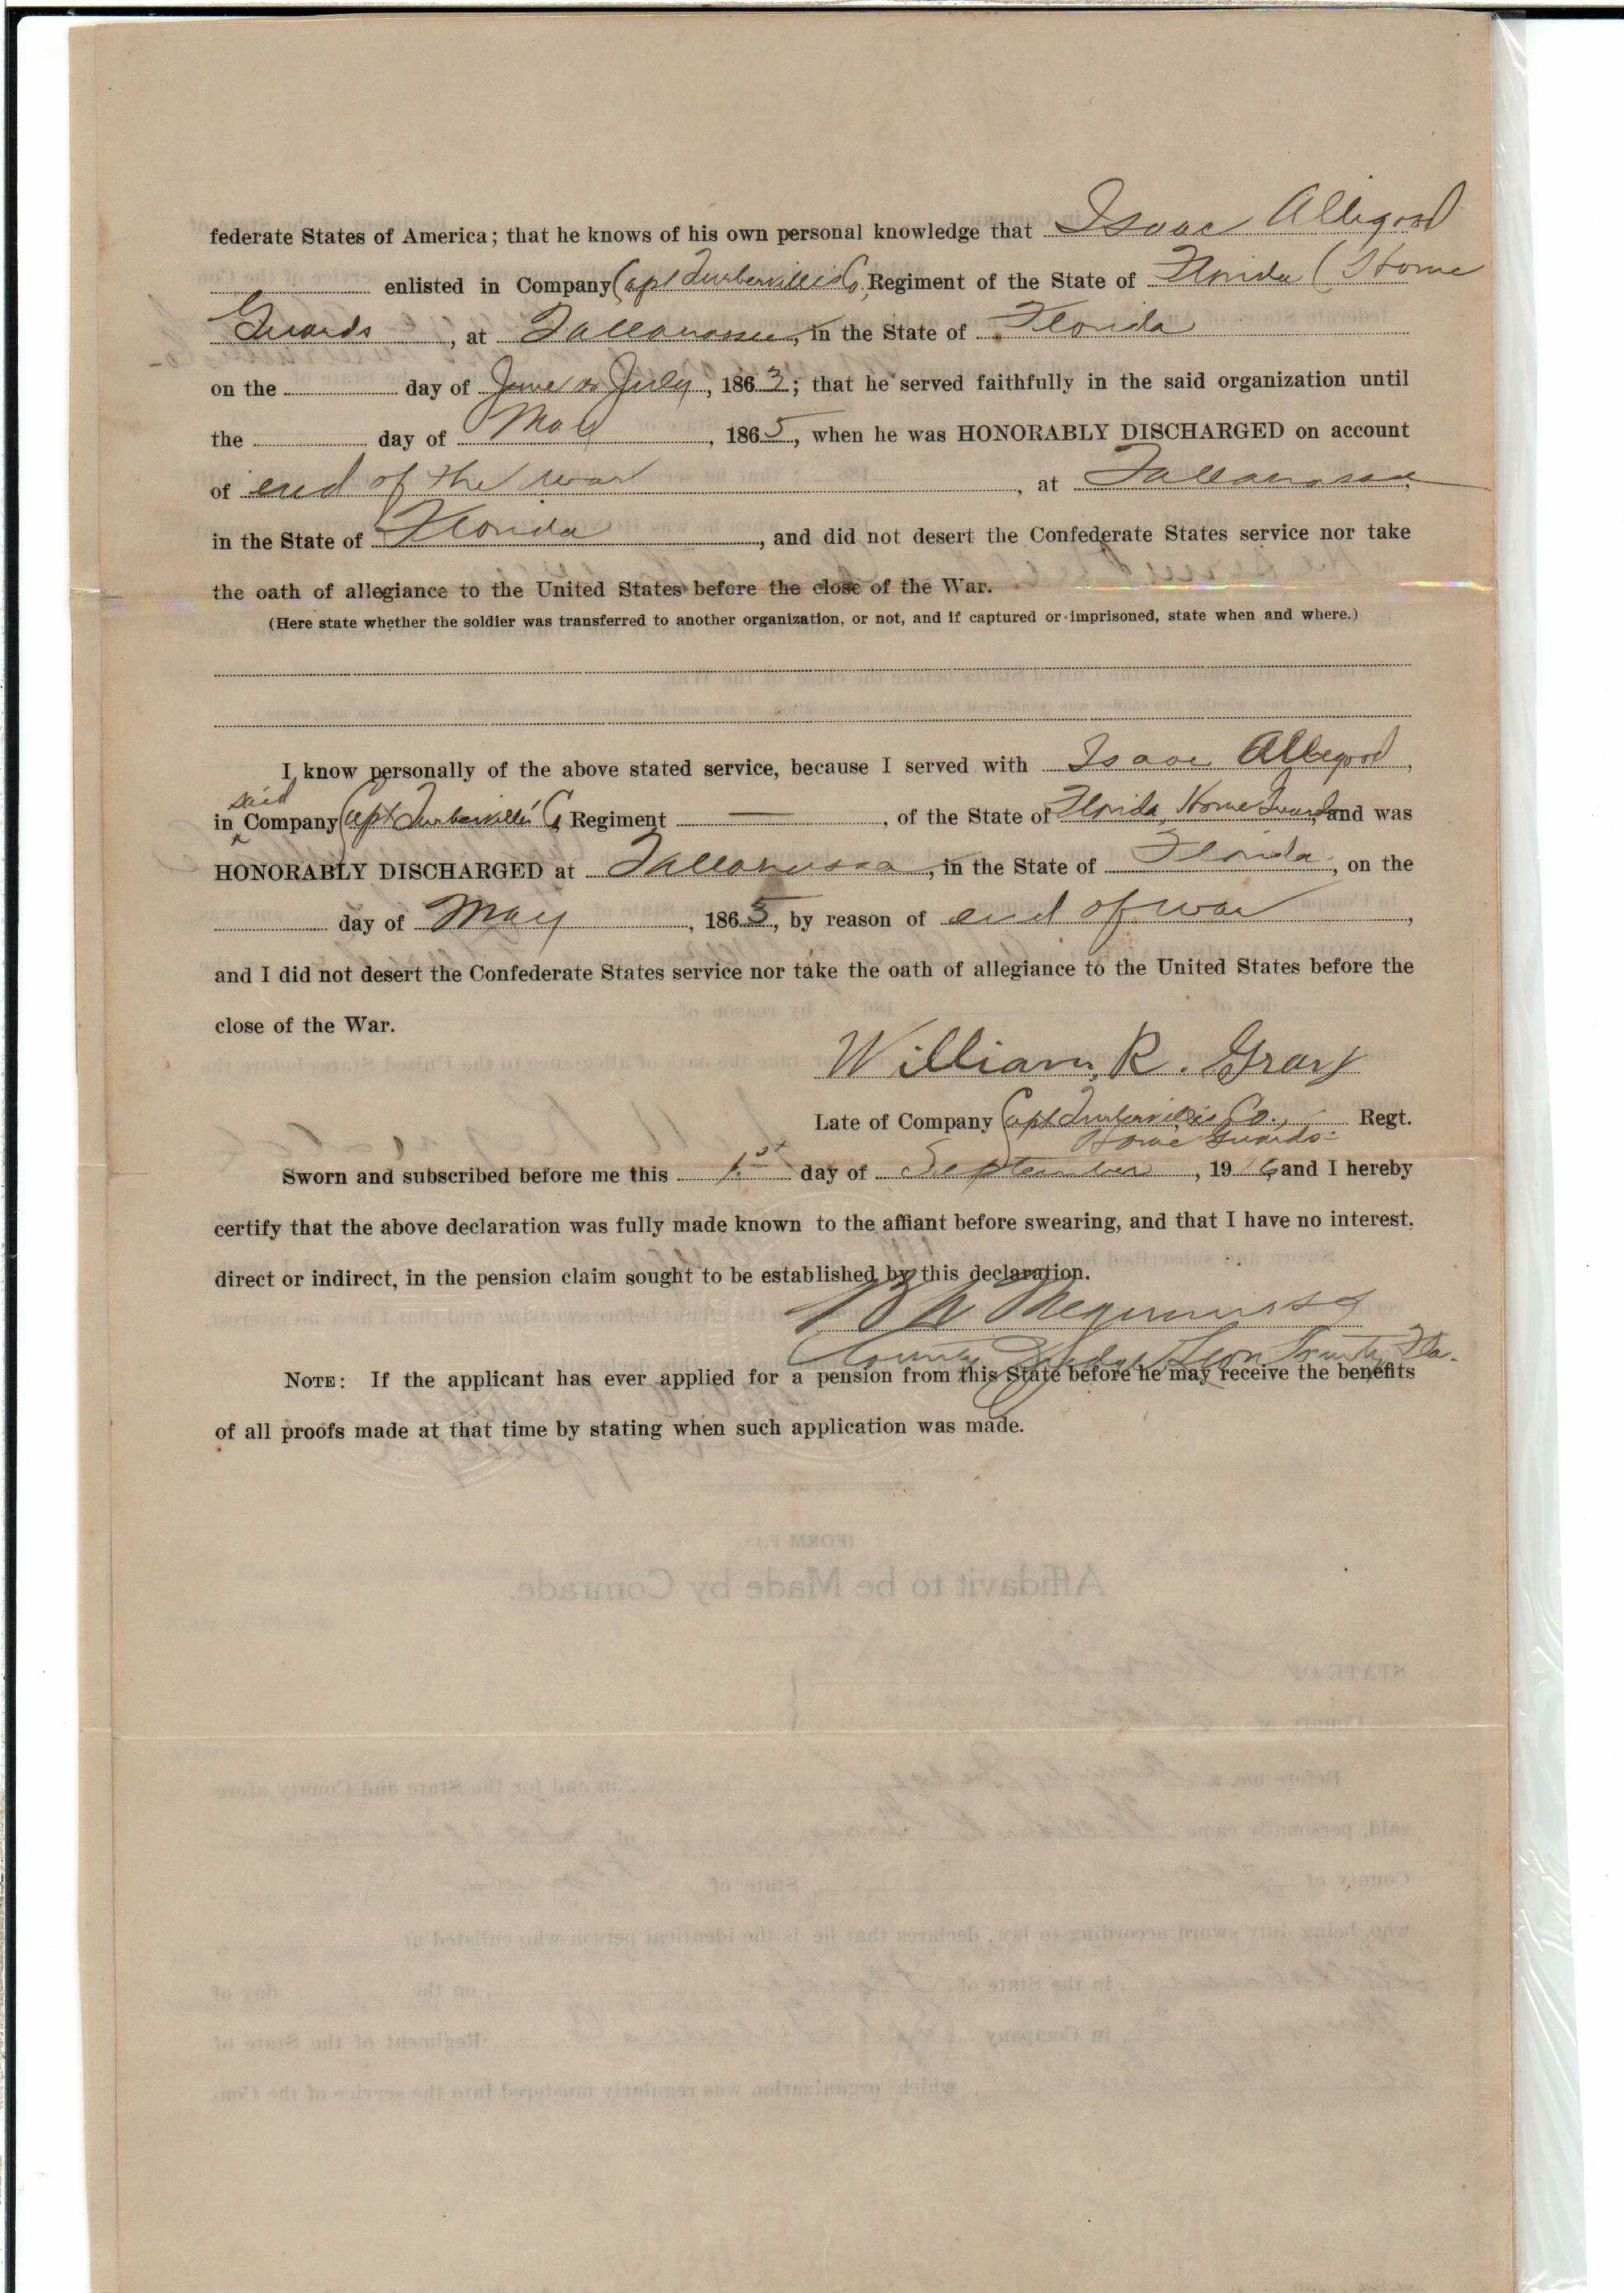 federate States of America; that he knows of his own personal knowledge that Isaac Allegood
enlisted in Company Capt Turberville's Co. Regiment of the State of Florida (Home
Guards , at Tallahassee, in the State of Florida
on the day of June or July, 1863; that he served faithfully in the said organization until
the day of May, 1865, when he was HONORABLY DISCHARGED on account
of end of the war, at Tallahassee
in the State of Florida, and did not desert the Confederate States service nor take
the oath of allegiance to the United States before the close of the War.
(Here state whether the soldier was transferred to another organization, or not, and if captured or imprisoned, state when and where.)
I know personally of the above stated service, because I served with Isaac Allegood,
said
in Company Capt Turberville's Co Regiment ——, of the State of Florida Home Guards, and was
HONORABLY DISCHARGED at Tallahassee, in the State of Florida, on the
day of May, 1865, by reason of end of war,
and I did not desert the Confederate States service nor take the oath of allegiance to the United States before the
close of the War.
William R. Gray
Late of Company Capt Turberville's Co., Regt.
Home Guards
Sworn and subscribed before me this 1st day of September, 1916, and I hereby
certify that the above declaration was fully made known to the affiant before swearing, and that I have no interest,
direct or indirect, in the pension claim sought to be established by this declaration.
County Judge Leon County, Fla.
NOTE: If the applicant has ever applied for a pension from this State before he may receive the benefits
of all proofs made at that time by stating when such application was made.